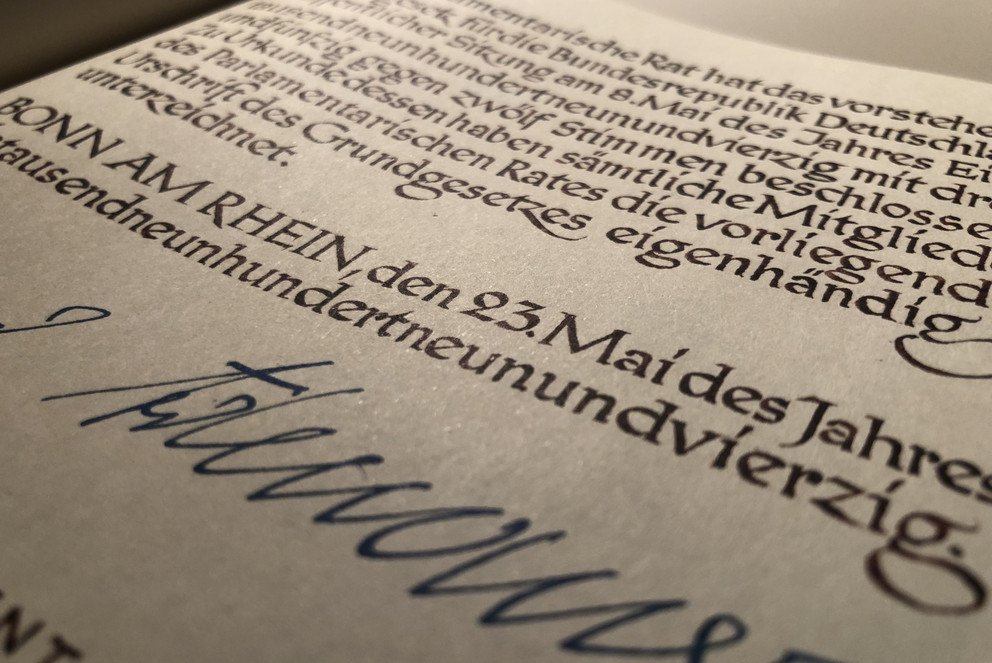 mentarische Rat hat das vorstehe
für die Bundesrepublik Deutschla
licher Sitzung am 8. Mai des Jahres Ei
tausendneunhundertneunundvierzig mit dre
undfünfzig gegen zwölf Stimmen beschlosse
Zu Urkunde dessen haben sämtliche Mitglied
des Parlamentarischen Rates die vorliegend
Urschrift des Grundgesetzes eigenhändig
unterzeichnet.
BONN AM RHEIN, den 23. Mai des Jahres
tausendneunhundertneunundvierzig.
ENT